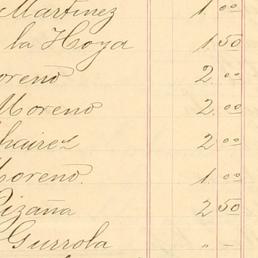 Martinez 1.00
la Hoya 1.50
oreno 2.00
Moreno 2.00
hairez 2.00
Moreno. 1.00
Pizaña 2.50
Gurrola " –